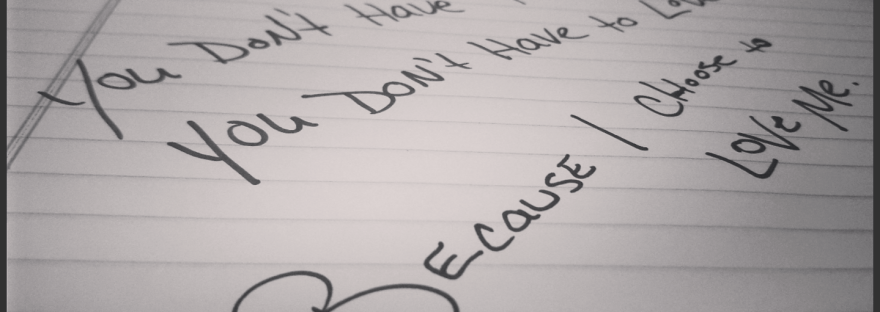 You Don't Have
You DON't Have to
BECAUSE I CHoose to
Love Me.